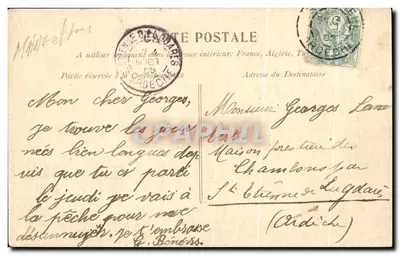 CARTE POSTALE
A utiliser seulement dans le service intérieur: France, Algérie, Tunisie
Partie réservée à la Correspondance
Adresse du Destinataire
Mon cher Georges,
je trouve les jour
nées bien longues dep
uis que tu es parti
le jeudi je vais à
la pêche pour me
désennuyer. Je t'embrasse
Monsieur Georges
Maison forestière des
Chambons par
St Etienne de Lugdarès
(Ardèche)